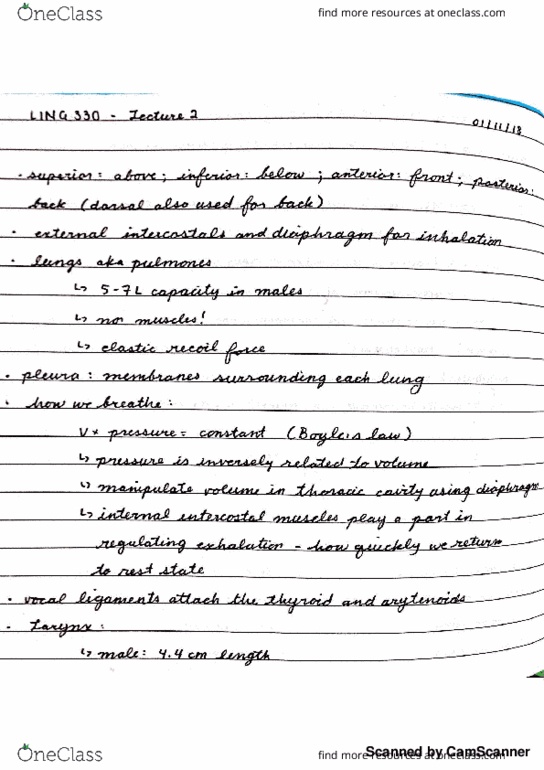 OneClass
find more resources at oneclass.com
LING 330 - Lecture 2
01/11/18
· superior: above; inferior: below; anterior: front; posterior:
back (dorsal also used for back)
· external intercostals and diaphragm for inhalation
· lungs aka pulmones
↳ 5-7L capacity in males
↳ no muscles!
↳ elastic recoil force
· pleura: membranes surrounding each lung
· how we breathe:
V × pressure = constant (Boyle's law)
↳ pressure is inversely related to volume
↳ manipulate volume in thoracic cavity using diaphragm
↳ internal intercostal muscles play a part in
regulating exhalation - how quickly we return
to rest state
· vocal ligaments attach the thyroid and arytenoids
· Larynx:
↳ male: 4.4 cm length
OneClass
find more resources at oneclass.com
Scanned by CamScanner